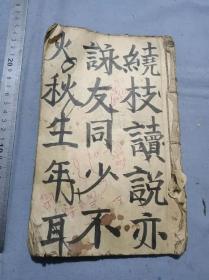 繞枝讀說亦
詠友同少不
火秋生年耳